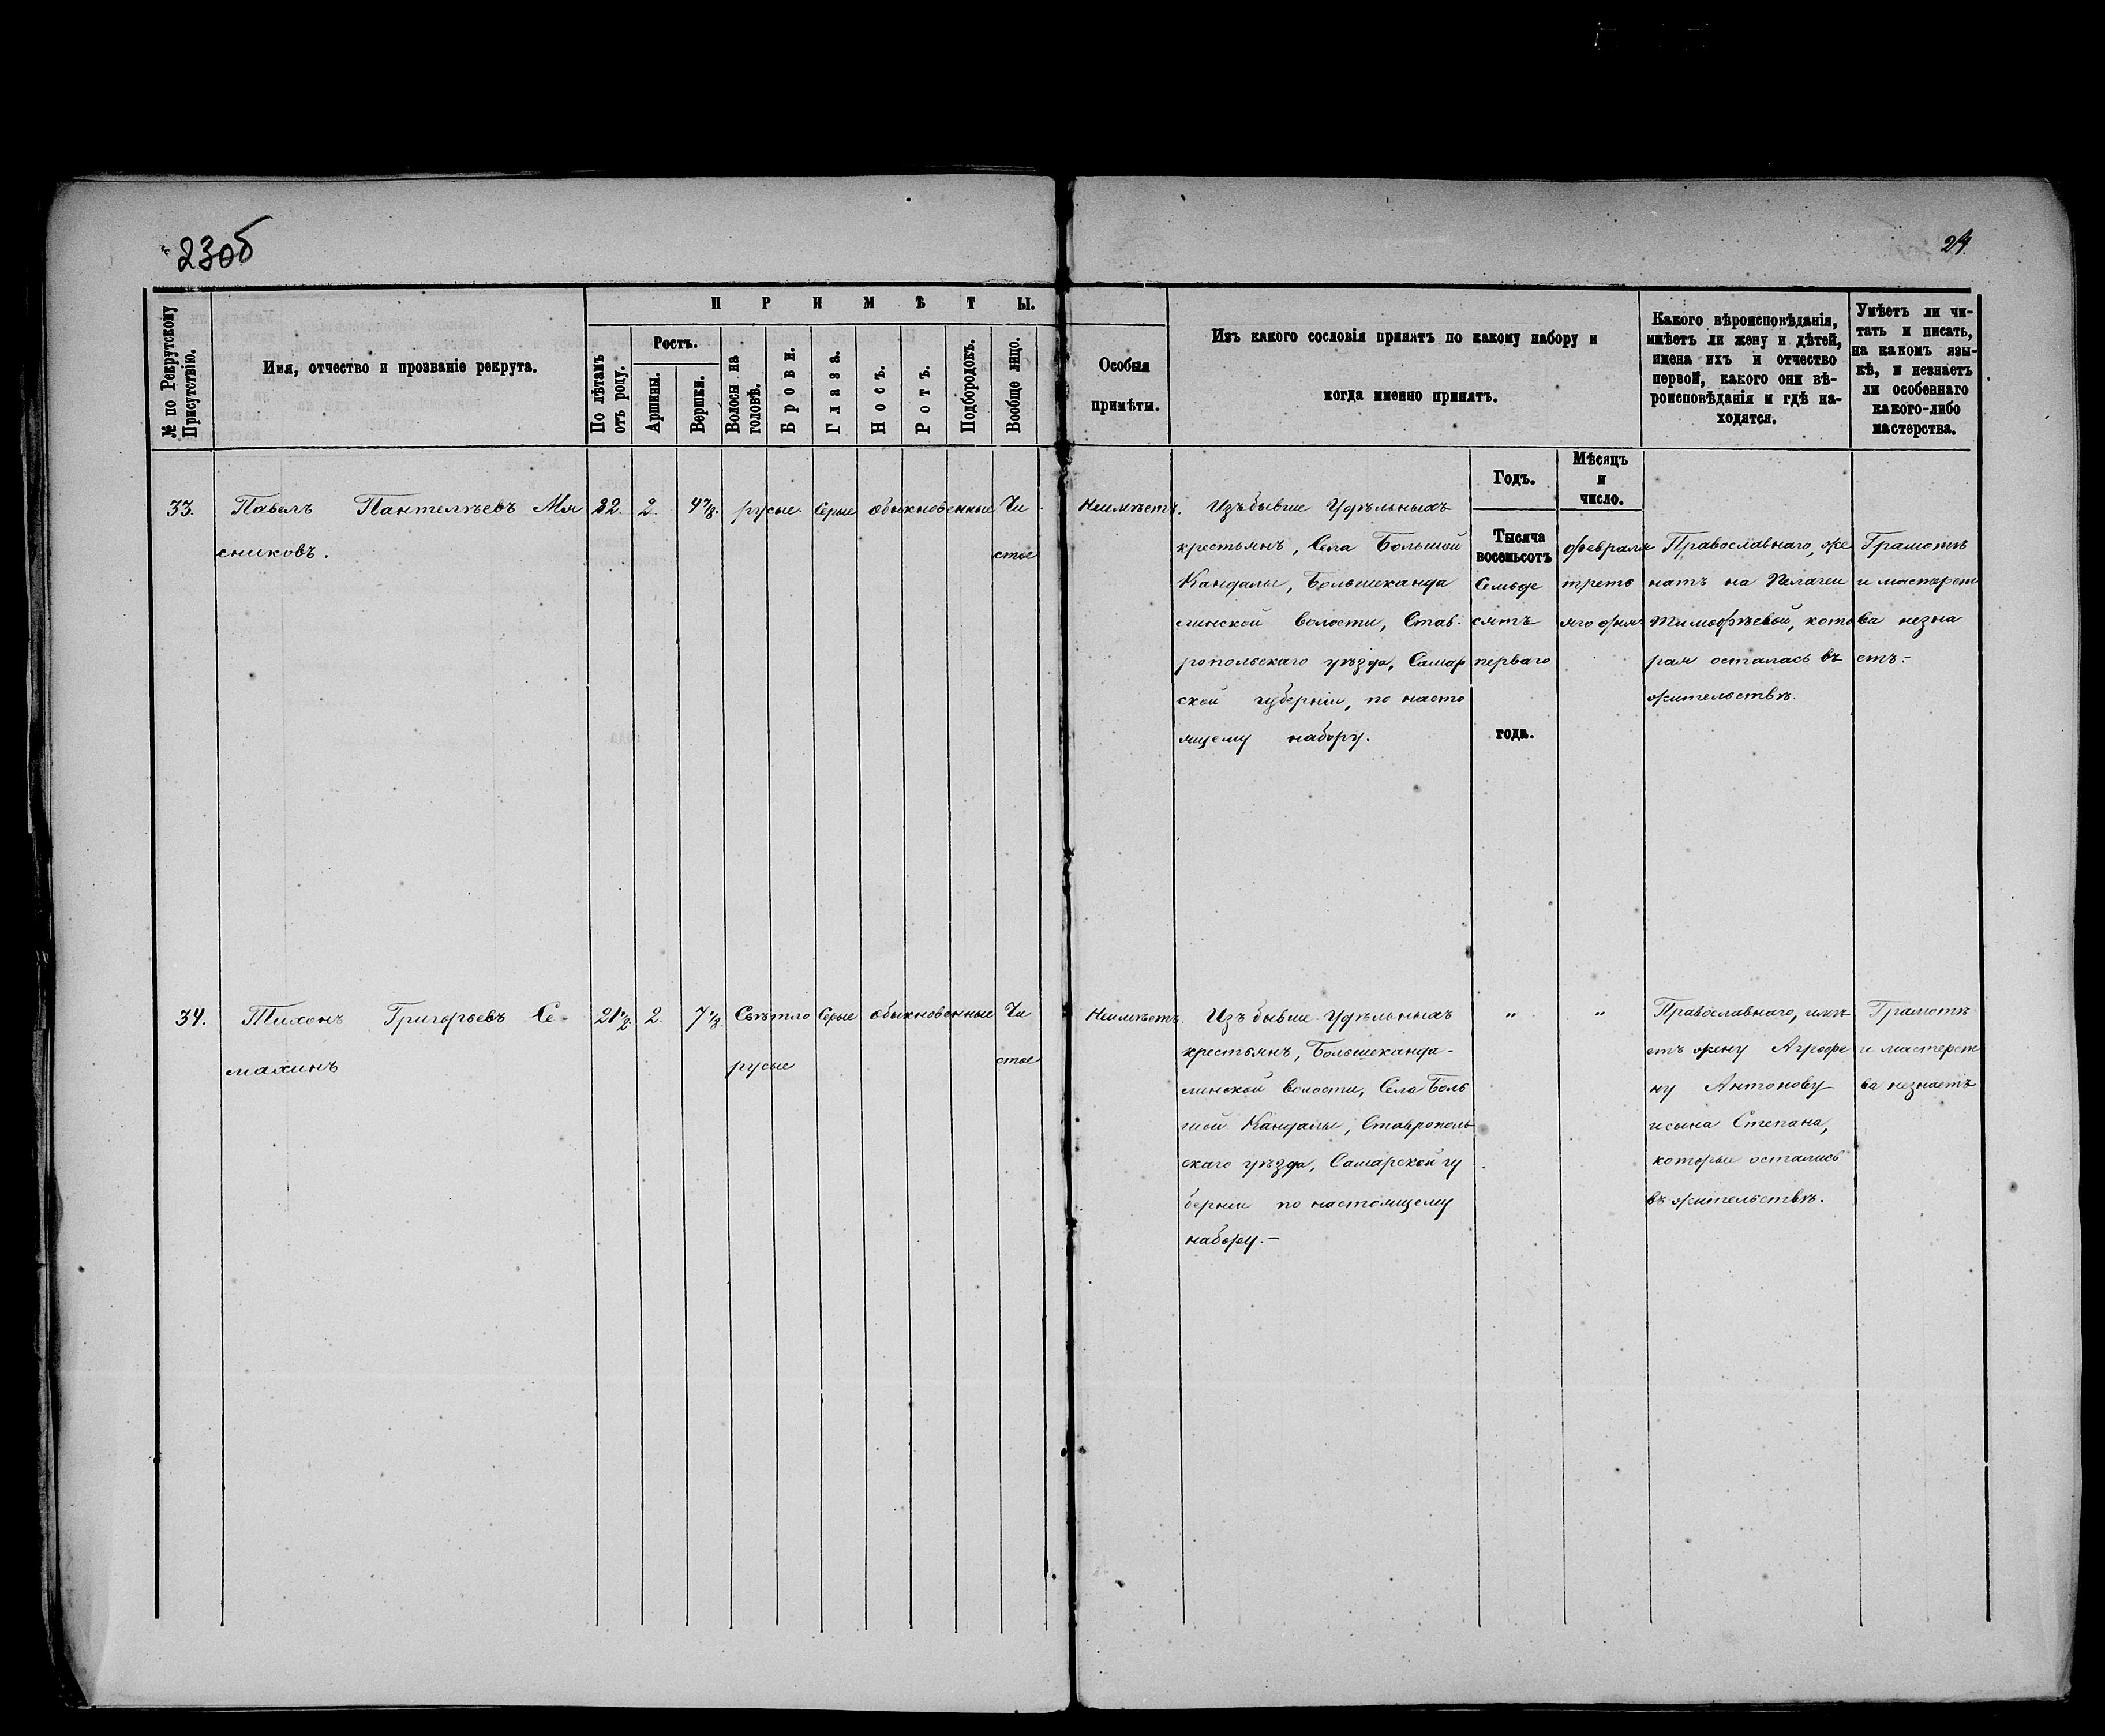 23об
24.
ПРИМѢТЫ.
№ по Рекрутскому
Присутствію.
Имя, отчество и прозваніе рекрута.
По лѣтамъ
отъ роду.
Ростъ.
Аршины.
Вершки.
Волосы на
головѣ.
Брови.
Глаза.
Носъ.
Ротъ.
Подбородокъ.
Вообще лицо.
Особыя
примѣты.
Изъ какого сословія принятъ по какому набору и
когда именно принятъ.
Какого вѣроисповѣданія,
имѣетъ ли жену и дѣтей,
имена ихъ и отчество
первой, какого они вѣ-
роисповѣданія и гдѣ на-
ходятся.
Умѣетъ ли чи-
тать и писать,
на какомъ язы-
кѣ, и незнаетъ
ли особеннаго
какого-либо
мастерства.
Годъ.
Мѣсяцъ
и
число.
33.
Павелъ Пантелѣевъ Мя
сниковъ.
22.
2.
4 7/8.
русые
Серые
обыкновенные
Чи
стое
Неимѣетъ.
Изъ бывше Удѣльныхъ
крестьянъ, Села Большой
Кандалы, Большеканда
линской волости, Став-
ропольскаго уѣзда, Самар
ской губерніи, по насто
ящему набору.
Тысяча
восемьсотъ
Семьде
сятъ
перваго
года.
февраля
треть
яго дня
Православнаго, же
натъ на Пелагеи
Тимофѣевой, кото
рая осталась въ
жительствѣ.
Грамотѣ
и мастерст
ва незна
етъ.-
34.
Тихонъ Григорьевъ Се-
махинъ
21 1/2.
2.
7 1/8
Свѣтло
русые
Серые
обыкновенные
Чи
стое
Неимѣетъ.
Изъ бывше Удѣльныхъ
крестьянъ, Большеканда-
линской волости, Села Боль
шой Кандалы, Ставрополь
скаго уѣзда, Самарской гу
берніи по настоящему
набору.-
"
"
Православнаго, имѣ
етъ жену Агрофе
ну Антонову
и сына Степана,
которые остались
въ жительствѣ.
Грамотѣ
и мастерст
ва незнаетъ